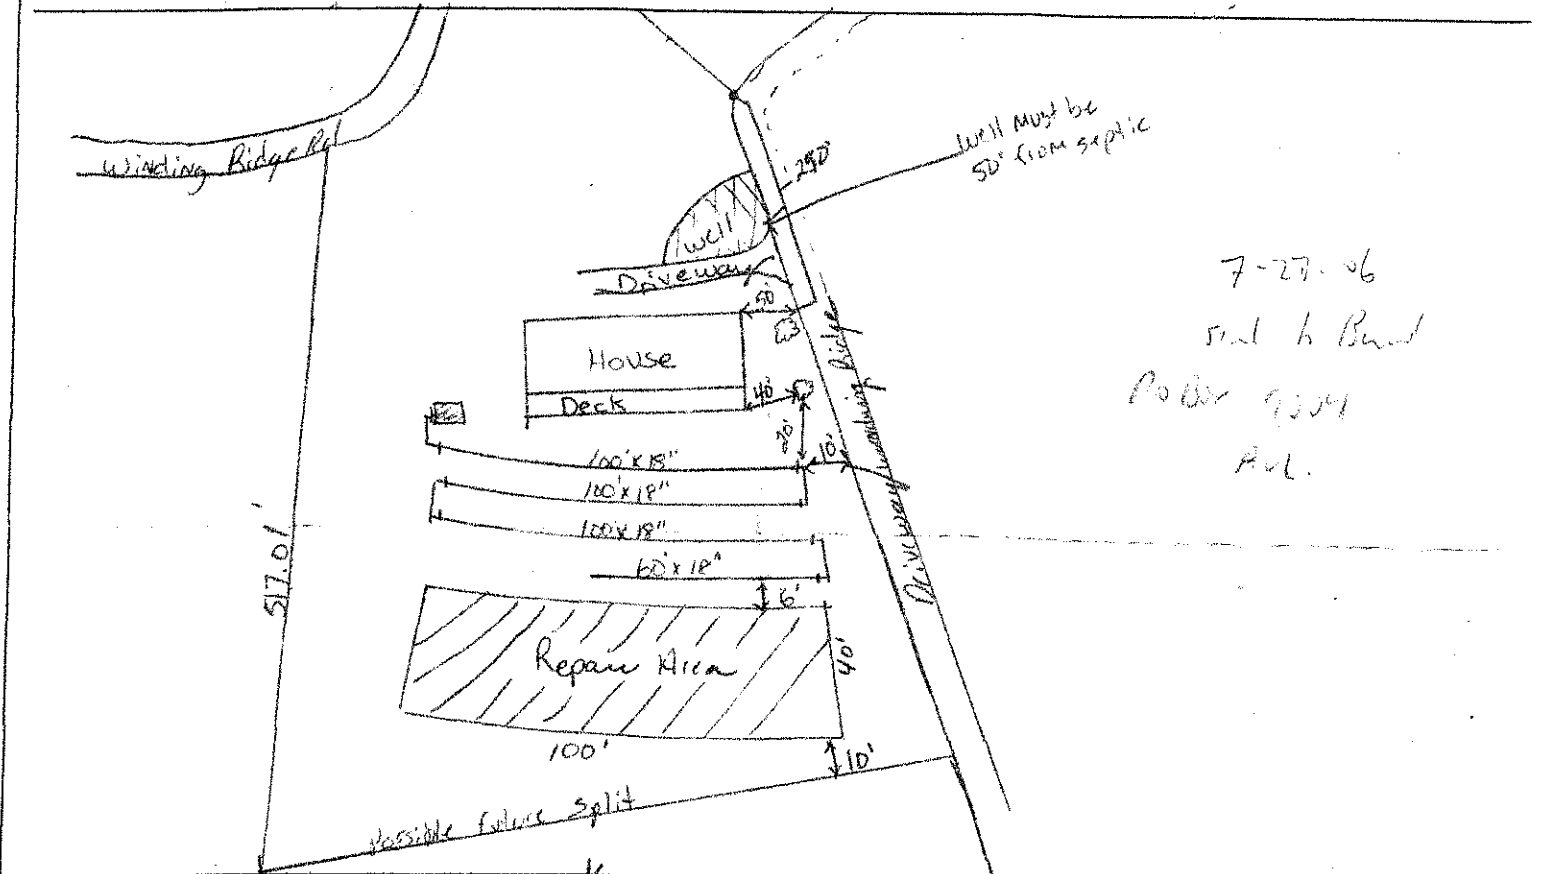 Winding Ridge Rd
Well Must be
50' from septic
250'
well
Driveway
50'
House
Deck
40'
20'
10'
100'x18"
100'x18"
100'x18"
60'x18"
6'
517.01'
Repair Area
40'
100'
10'
Possible future split
Driveway
Ridge
7-27-06
Po Box